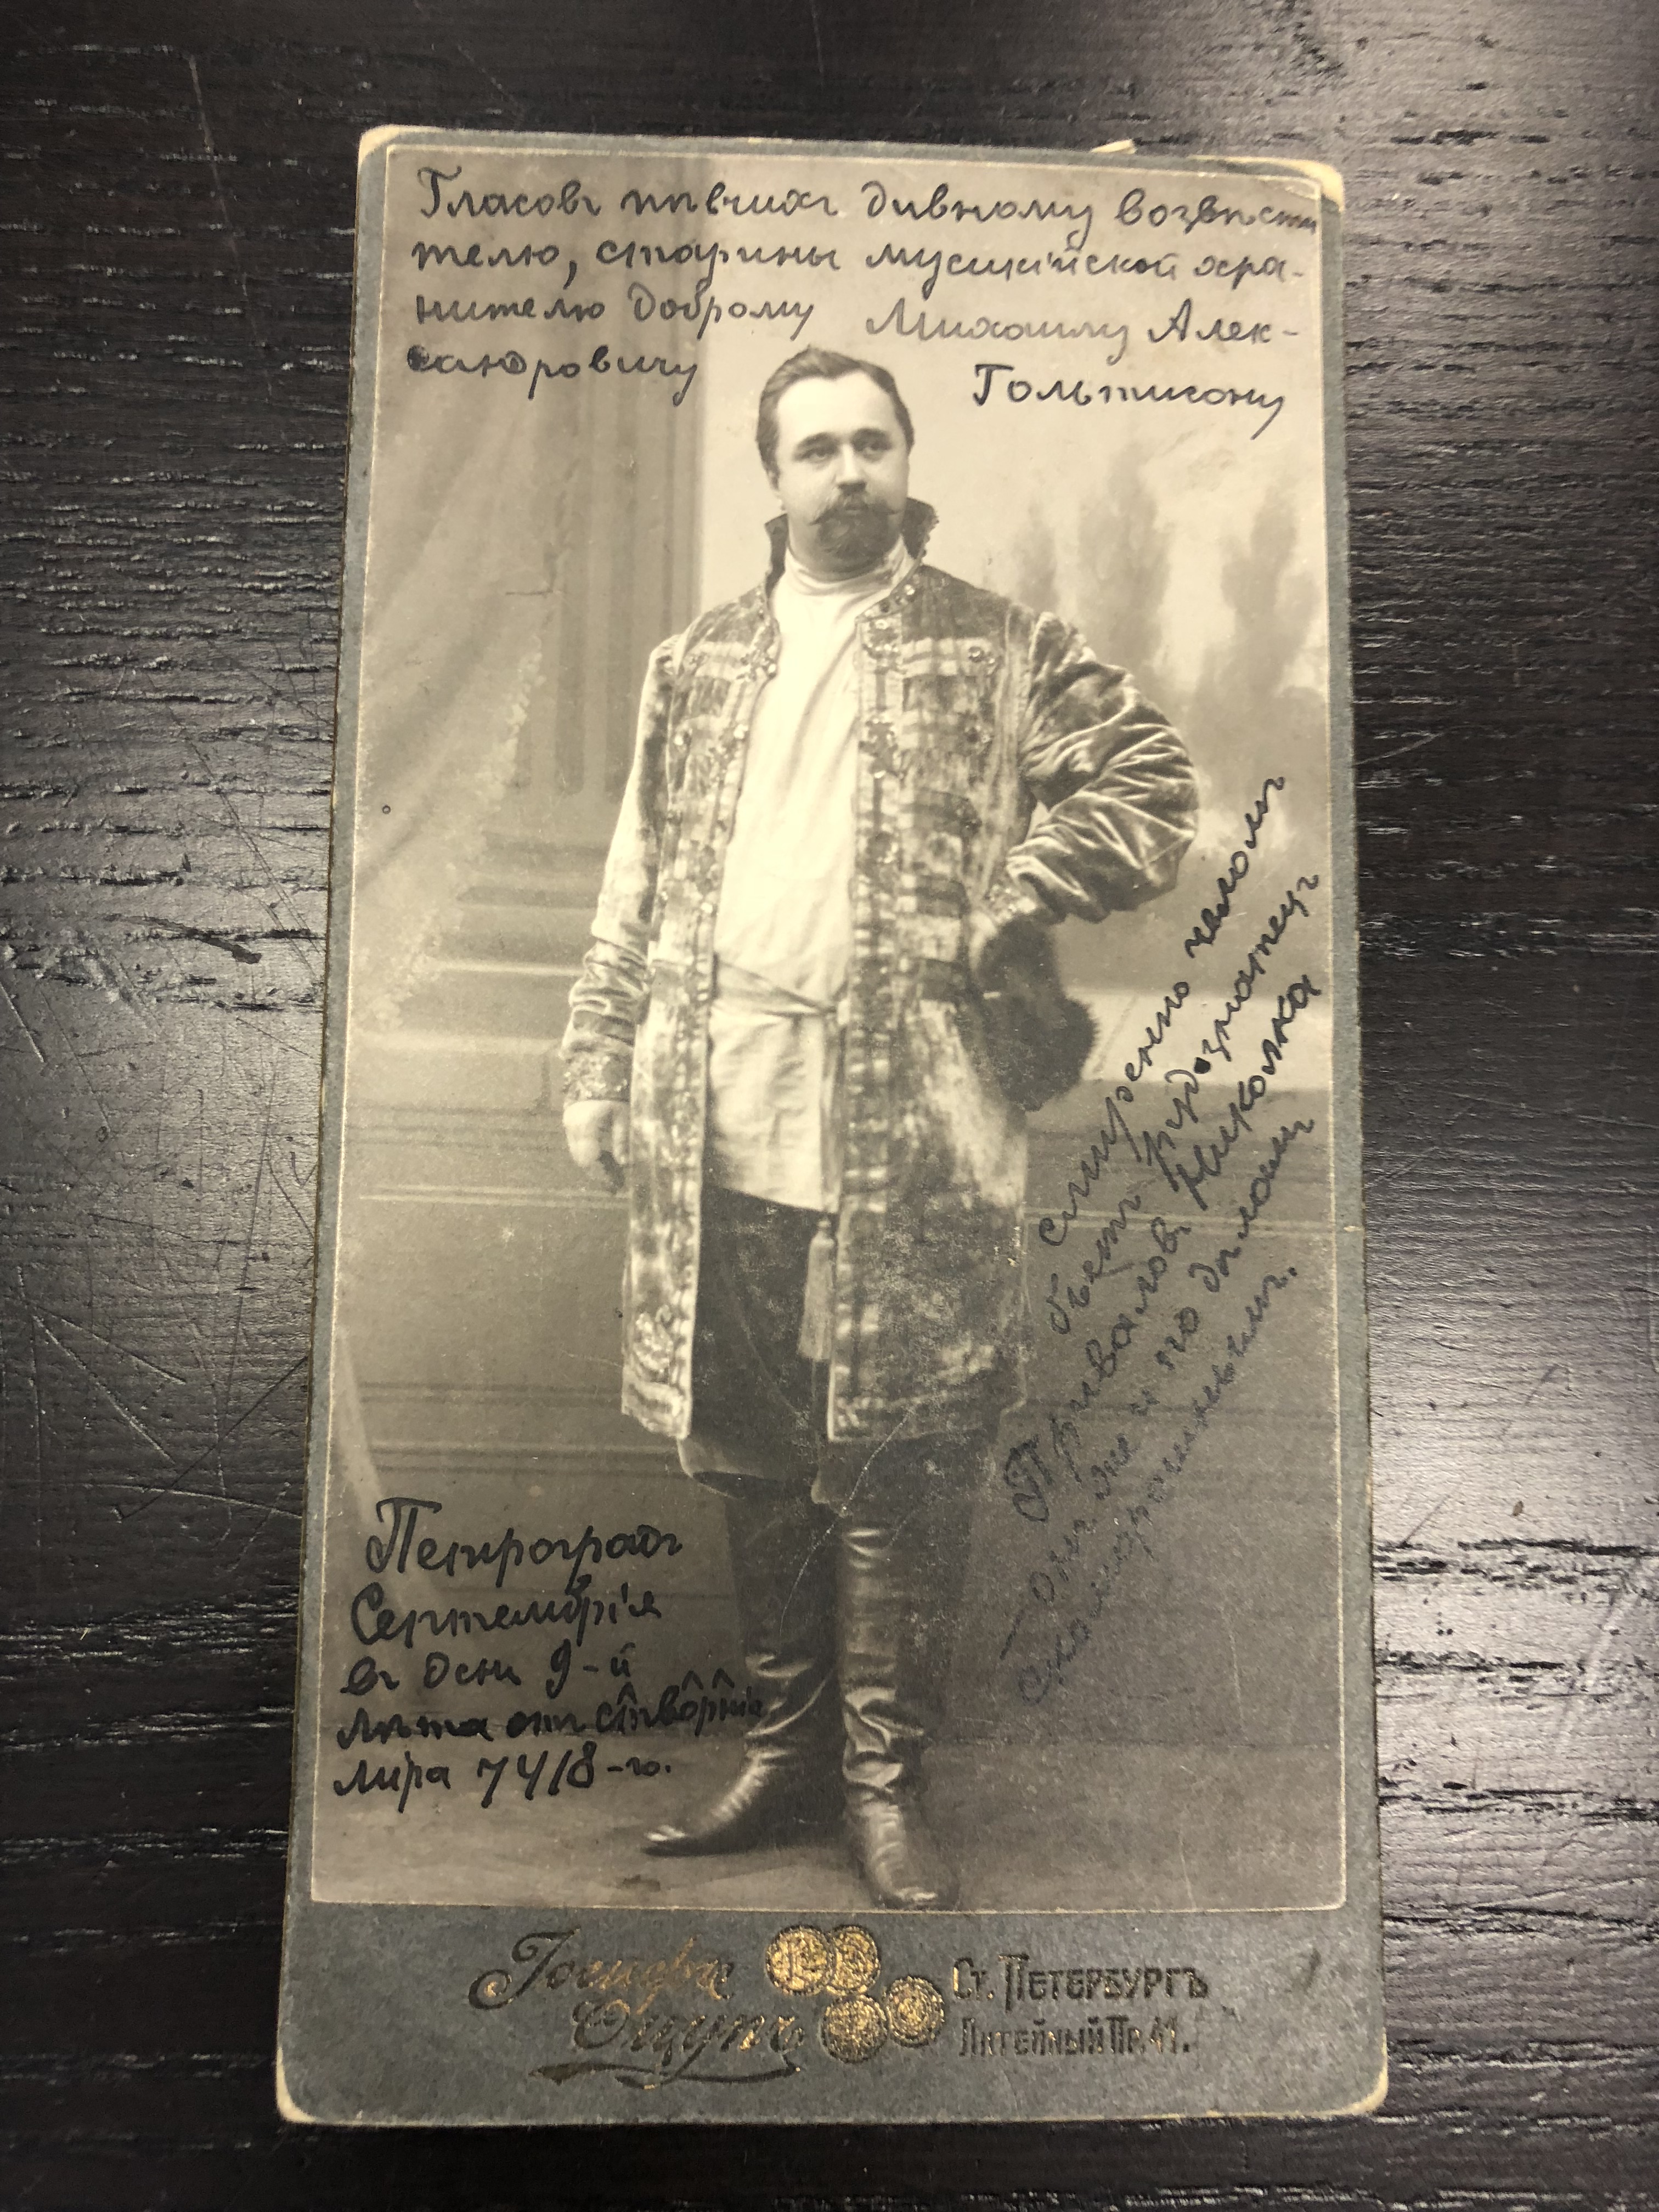 Гласовъ пѣвчихъ дивному возвѣсти
телю, старины мусикійской хра-
нителю доброму Михаилу Алек-
сандровичу
Гольтисону
смиренно челомъ
бьетъ гудознатецъ
Приваловъ Николка
онъ же и по дѣламъ
скоморошьимъ.
Петроградъ
Септемврія
въ день 9-й
лѣта отъ ств̂орн̂ія
міра 7418-го.
Іосифъ
Оцупъ
Ст. Петербургъ
Литейный Пр. 41.